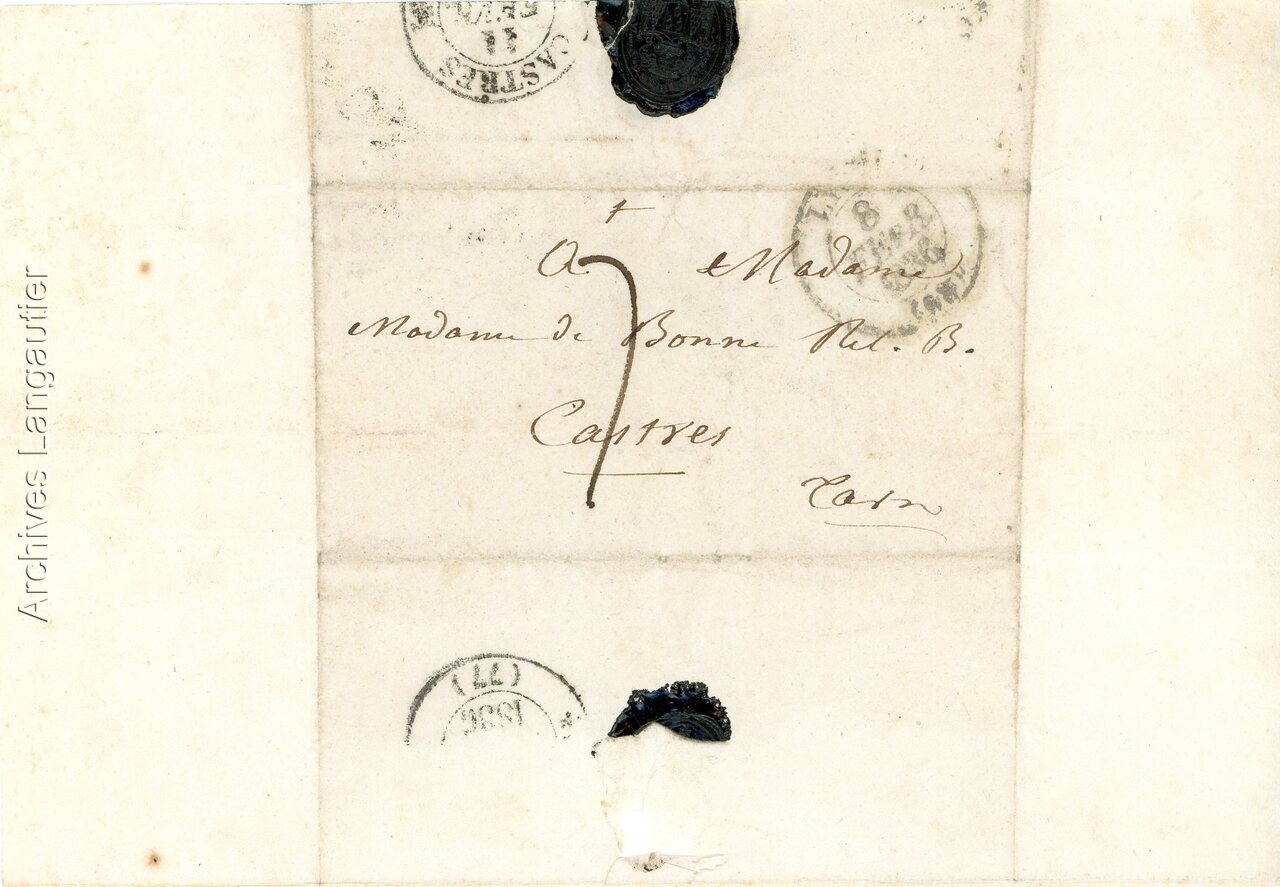 CASTRES
11
FEVR
8
FEVR
1836
†
A Madame
7
Madame de Bonne Rel. B.
Castres
Tarn
(77)
1836
Archives Langautier